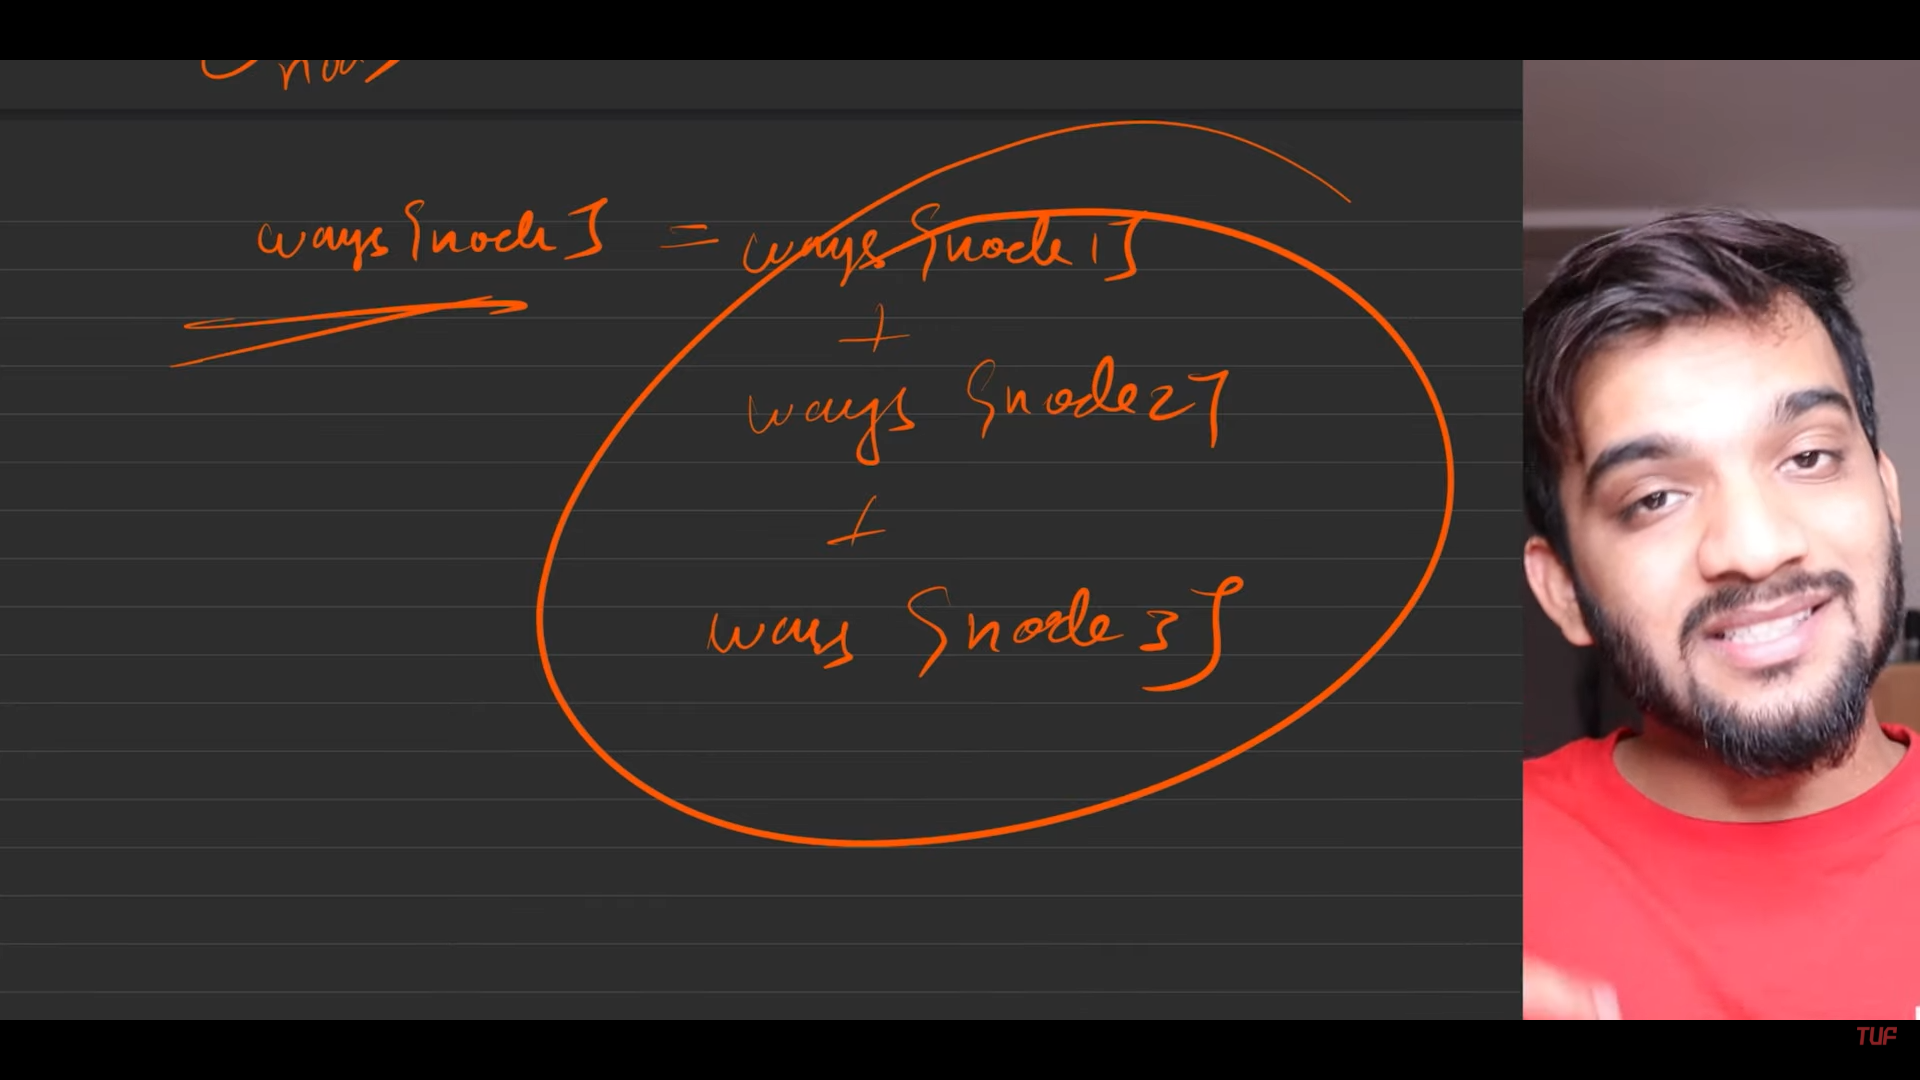 ways[node] = ways[node1]
+
ways [node2]
+
ways [node3]
TUF